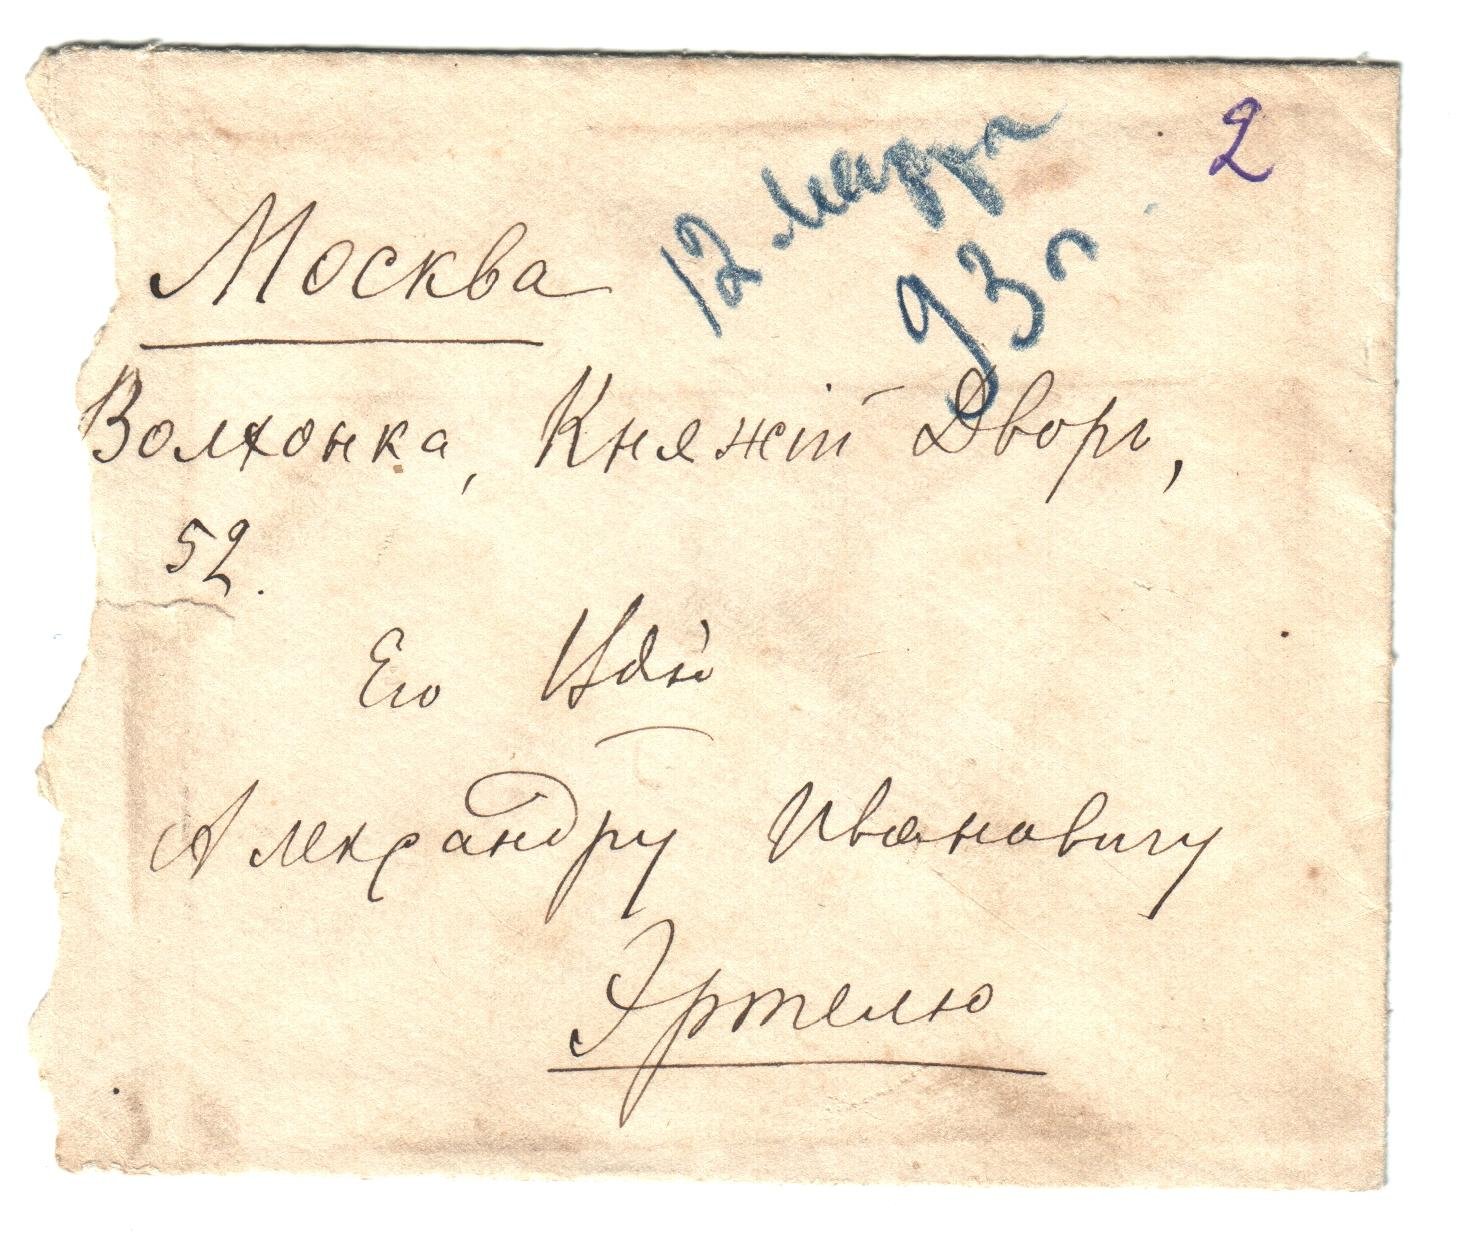 2
12 Марта
93 г
Москва
Волхонка, Княжій Дворъ,
52.
Его
Александру Ивановичу
Эртелю